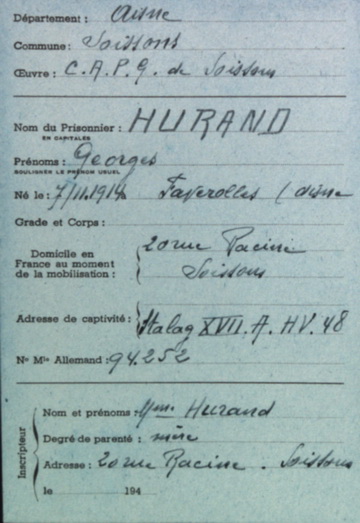 Département : Aisne
Commune : Soissons
Œuvre : C.A.P.G. de Soissons
Nom du Prisonnier : HURAND
EN CAPITALES
Prénoms : Georges
SOULIGNER LE PRÉNOM USUEL
Né le : 7/11.1914 Faverolles (Aisne
Grade et Corps :
Domicile en France au moment de la mobilisation : 20 rue Racine
Soissons
Adresse de captivité : Stalag XVII. A. HV. 48
No Mle Allemand : 94.252
Inscripteur
Nom et prénoms : Mme Hurand
Degré de parenté : mère
Adresse : 20 rue Racine . Soissons
le 194